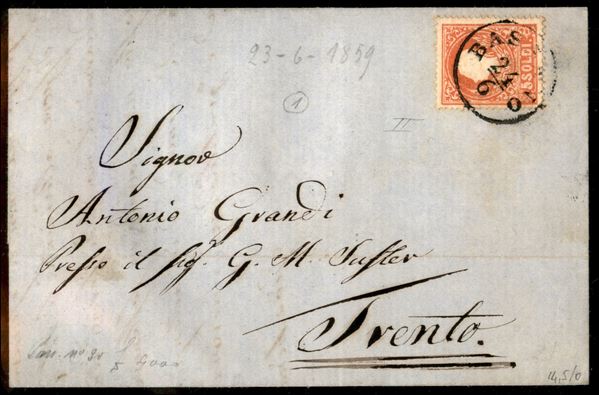 23-6-1859
5 SOLDI
BAS
ONA
1
II
Signor
Antonio Grandi
Presso il Sig. G. M.
Trento.
14,5/0